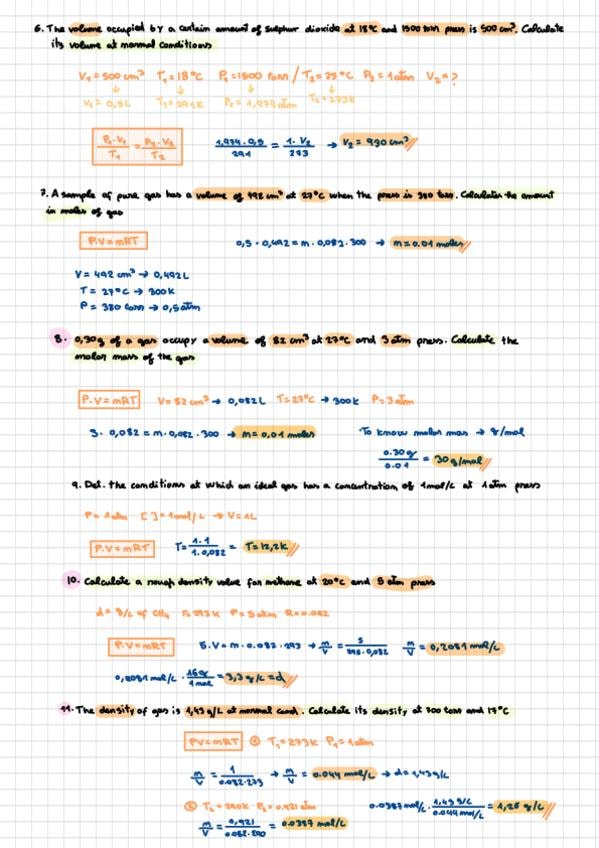 6. The volume occupied by a certain amount of sulphur dioxide at 18°C and 1500 torr press is 500 cm³. Calculate
its volume at normal conditions
V₁=500 cm³ T₁=18°C P₁=1500 torr / T₂=25°C P₂=1atm V₂=?
↓ ↓ ↓ ↓
V₁=0,5L T₁=291K P₁=1,974atm T₂=273K
P₁·V₁/T₁ = P₂·V₂/T₂ 1,974·0,5/291 = 1·V₂/273 → V₂=930cm³
7. A sample of pure gas has a volume of 492 cm³ at 27°C when the press is 380 torr. Calculate the amount
in moles of gas
P.V=nRT 0,5·0,492=n·0.082·300 → n=0.01 moles
V=492 cm³ → 0,492L
T=27°C → 300K
P=380 torr → 0,5atm
8. 0,30g of a gas occupy a volume of 82 cm³ at 27°C and 3 atm press. Calculate the
molar mass of the gas
P.V=nRT V=82cm³ → 0,082L T=27°C → 300K P=3atm
3·0,082=n·0,082·300 → n=0,01 moles To know molar mas → g/mol
0.30g/0.01 = 30g/mol
9. Det. the conditions at which an ideal gas has a concentration of 1mol/L at 1atm press
P=1atm [ ]=1mol/L → V=1L
P.V=nRT T=1·1/1·0,082 = T=12,2K
10. Calculate a rough density value for methane at 20°C and 5atm press
d=g/L of CH₄ T=293K P=5atm R=0.082
P.V=nRT 5.V=n·0.082·293 → n/V=5/293·0,082 n/V=0,2081mol/L
0,2081mol/L·16g/1mol=3,3g/L=d
11. The density of gas is 1,43g/L at normal cond. Calculate its density at 700 torr and 17°C
PV=nRT ① T₁=273K P₁=1atm
n/V=1/0.082·273 → n/V=0.044mol/L → d=1,43g/L
② T₂=290K P₂=0,921atm 0.0387mol/L·1,43g/L/0.044mol/L=1,26g/L
n/V=0,921/0.082·290=0.0387mol/L